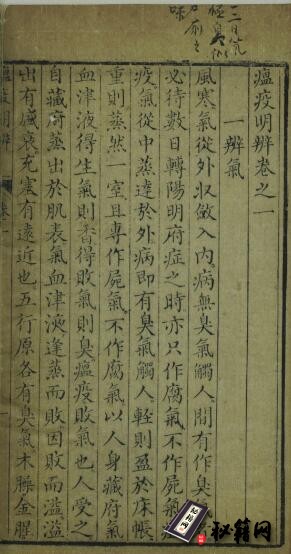 三日氣
極臭
味
瘟疫明辨卷之一
一辨氣
風寒氣從外收斂入內病無臭氣觸人間有作臭氣
必待數日轉陽明府症之時亦只作腐氣不作屍氣
疫氣從中蒸達於外病即有臭氣觸人輕則盈於床帳
重則蒸然一室且專作屍氣不作腐氣以人身藏府氣
血津液得生氣則香得敗氣則臭瘟疫敗氣也人受之
自藏府蒸出於肌表氣血津液逢蒸而敗因敗而溢溢
出有盛衰充塞有遠近也五行原各有臭氣木臊金腥
瘟疫明辨
秘籍网